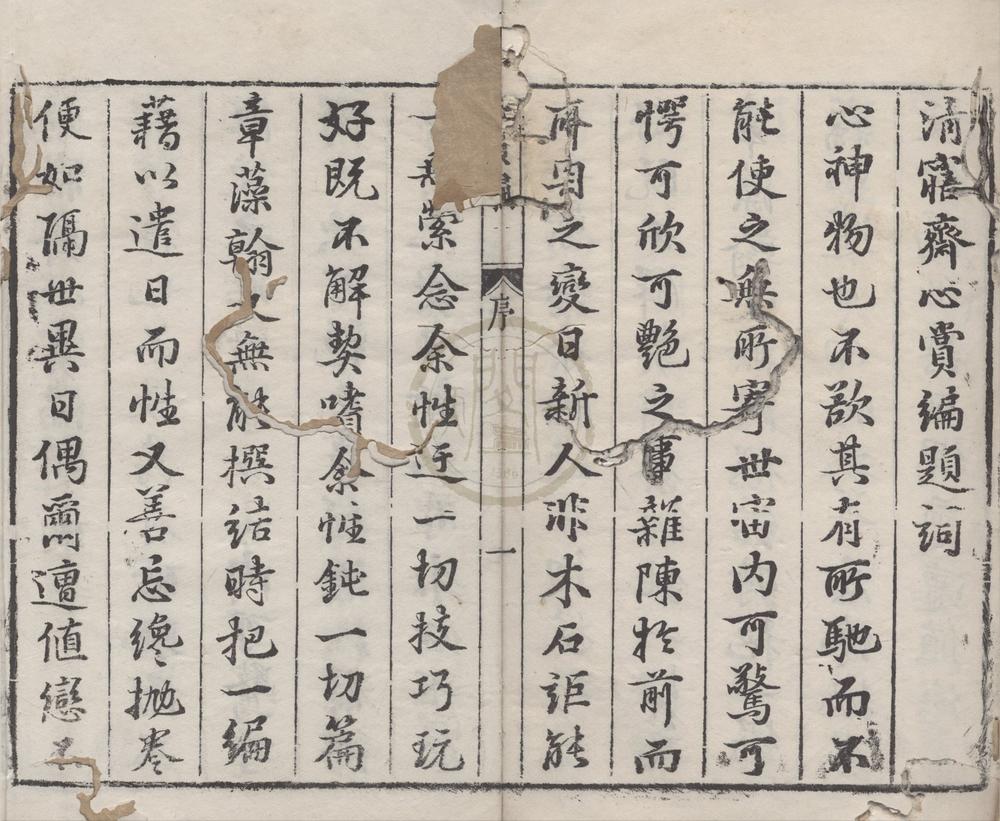 清寤齋心賞編題詞
心神物也不欲其有所馳而不
能使之無所寄世宙内可驚可
愕可欣可艷之事雜陳於前而
耳目之變日新人非木石詎能
一無縈念余性迂一切技巧玩
好既不解契嗜余性鈍一切篇
章藻翰又無能撰結時把一編
藉以遣日而性又善忘纔抛卷
便如隔世異日偶爾遭值戀不
序
一